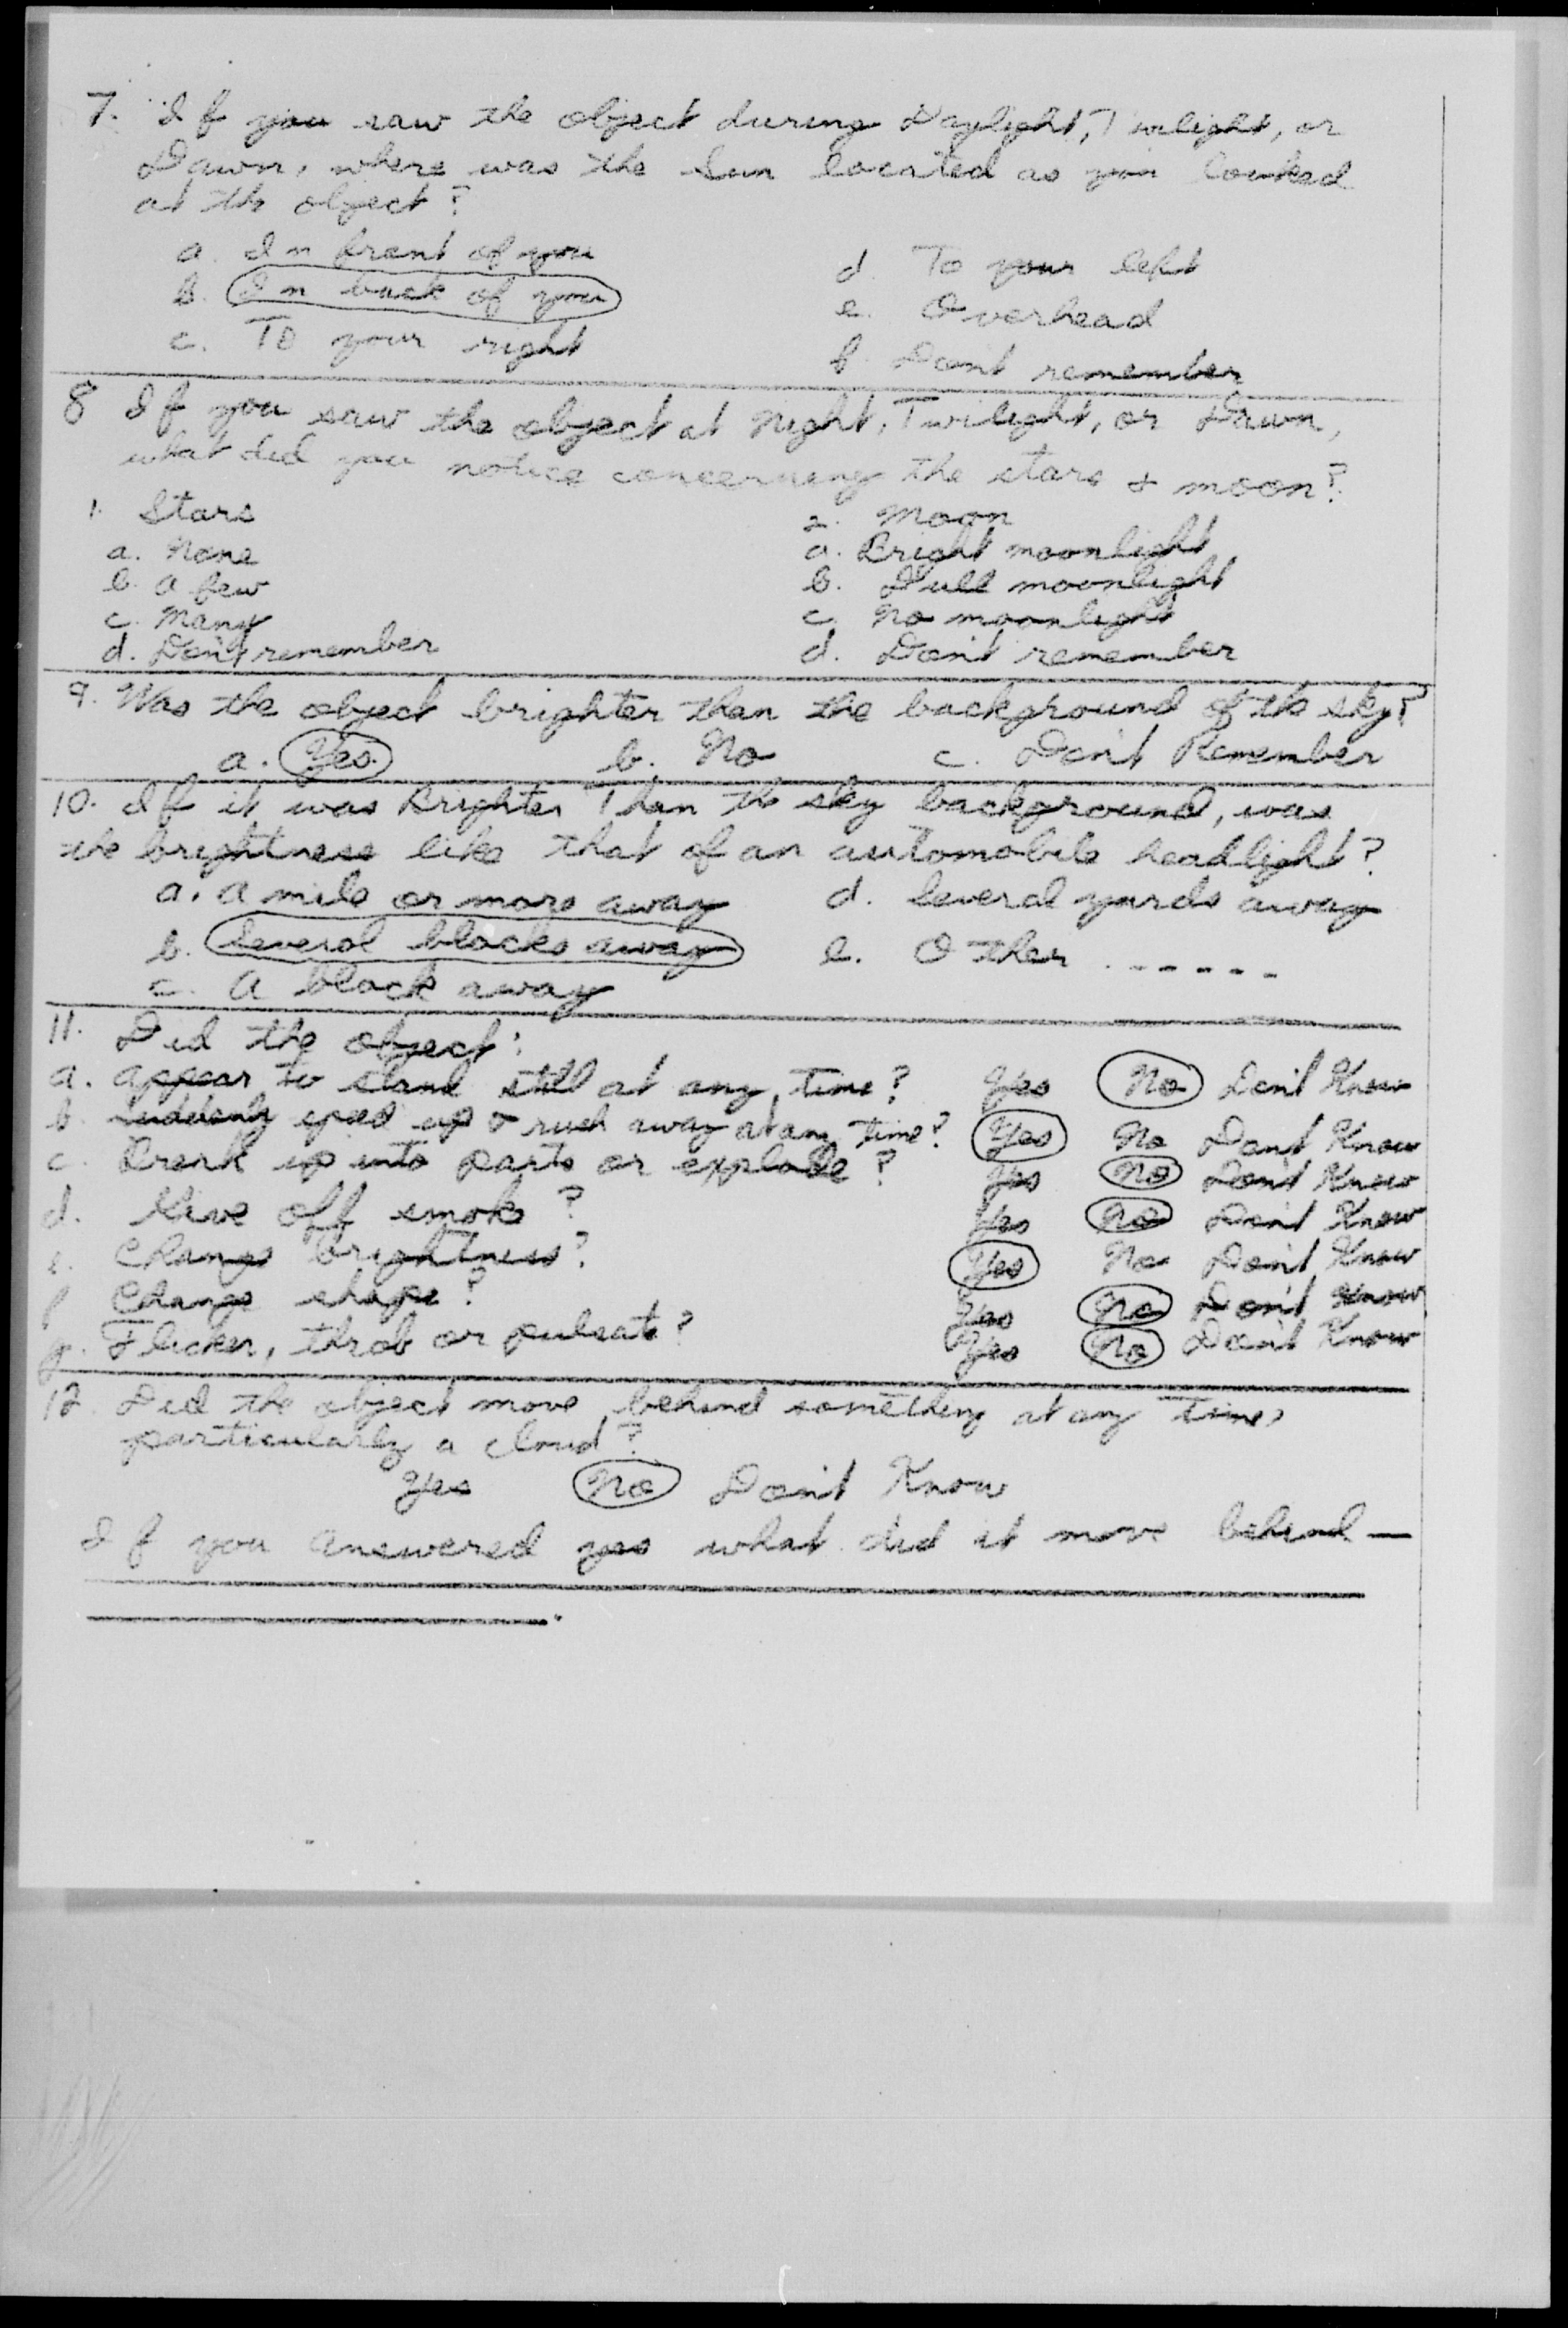 7. If you saw the object during Daylight, Twilight, or
Dawn, where was the Sun located as you looked
at the object?
a. In front of you
d. To your left
b. In back of you
e. Overhead
c. To your right
f. Don't remember
8 If you saw the object at Night, Twilight, or Dawn,
what did you notice concerning the stars & moon?
1. Stars
2. Moon
a. None
a. Bright moonlight
b. A few
b. Dull moonlight
c. Many
c. No moonlight
d. Don't remember
d. Don't remember
9. Was the object brighter than the background of the sky?
a. Yes. b. No c. Don't Remember
10. If it was Brighter Than the sky background, was
the brightness like that of an automobile headlight?
a. A mile or more away
d. Several yards away
b. Several blocks away
e. Other ......
c. A block away
11. Did the object:
a. Appear to stand still at any time? Yes No Don't Know
b. Suddenly speed up & rush away at any time? Yes No Don't Know
c. Break up into parts or explode? Yes No Don't Know
d. Give off smoke? Yes No Don't Know
e. Change brightness? Yes No Don't Know
f Change shape? Yes No Don't Know
g. Flicker, throb or pulsate? Yes No Don't Know
12. Did the object move behind something at any time,
particularly a cloud?
Yes No Don't Know
If you answered yes what did it move behind —